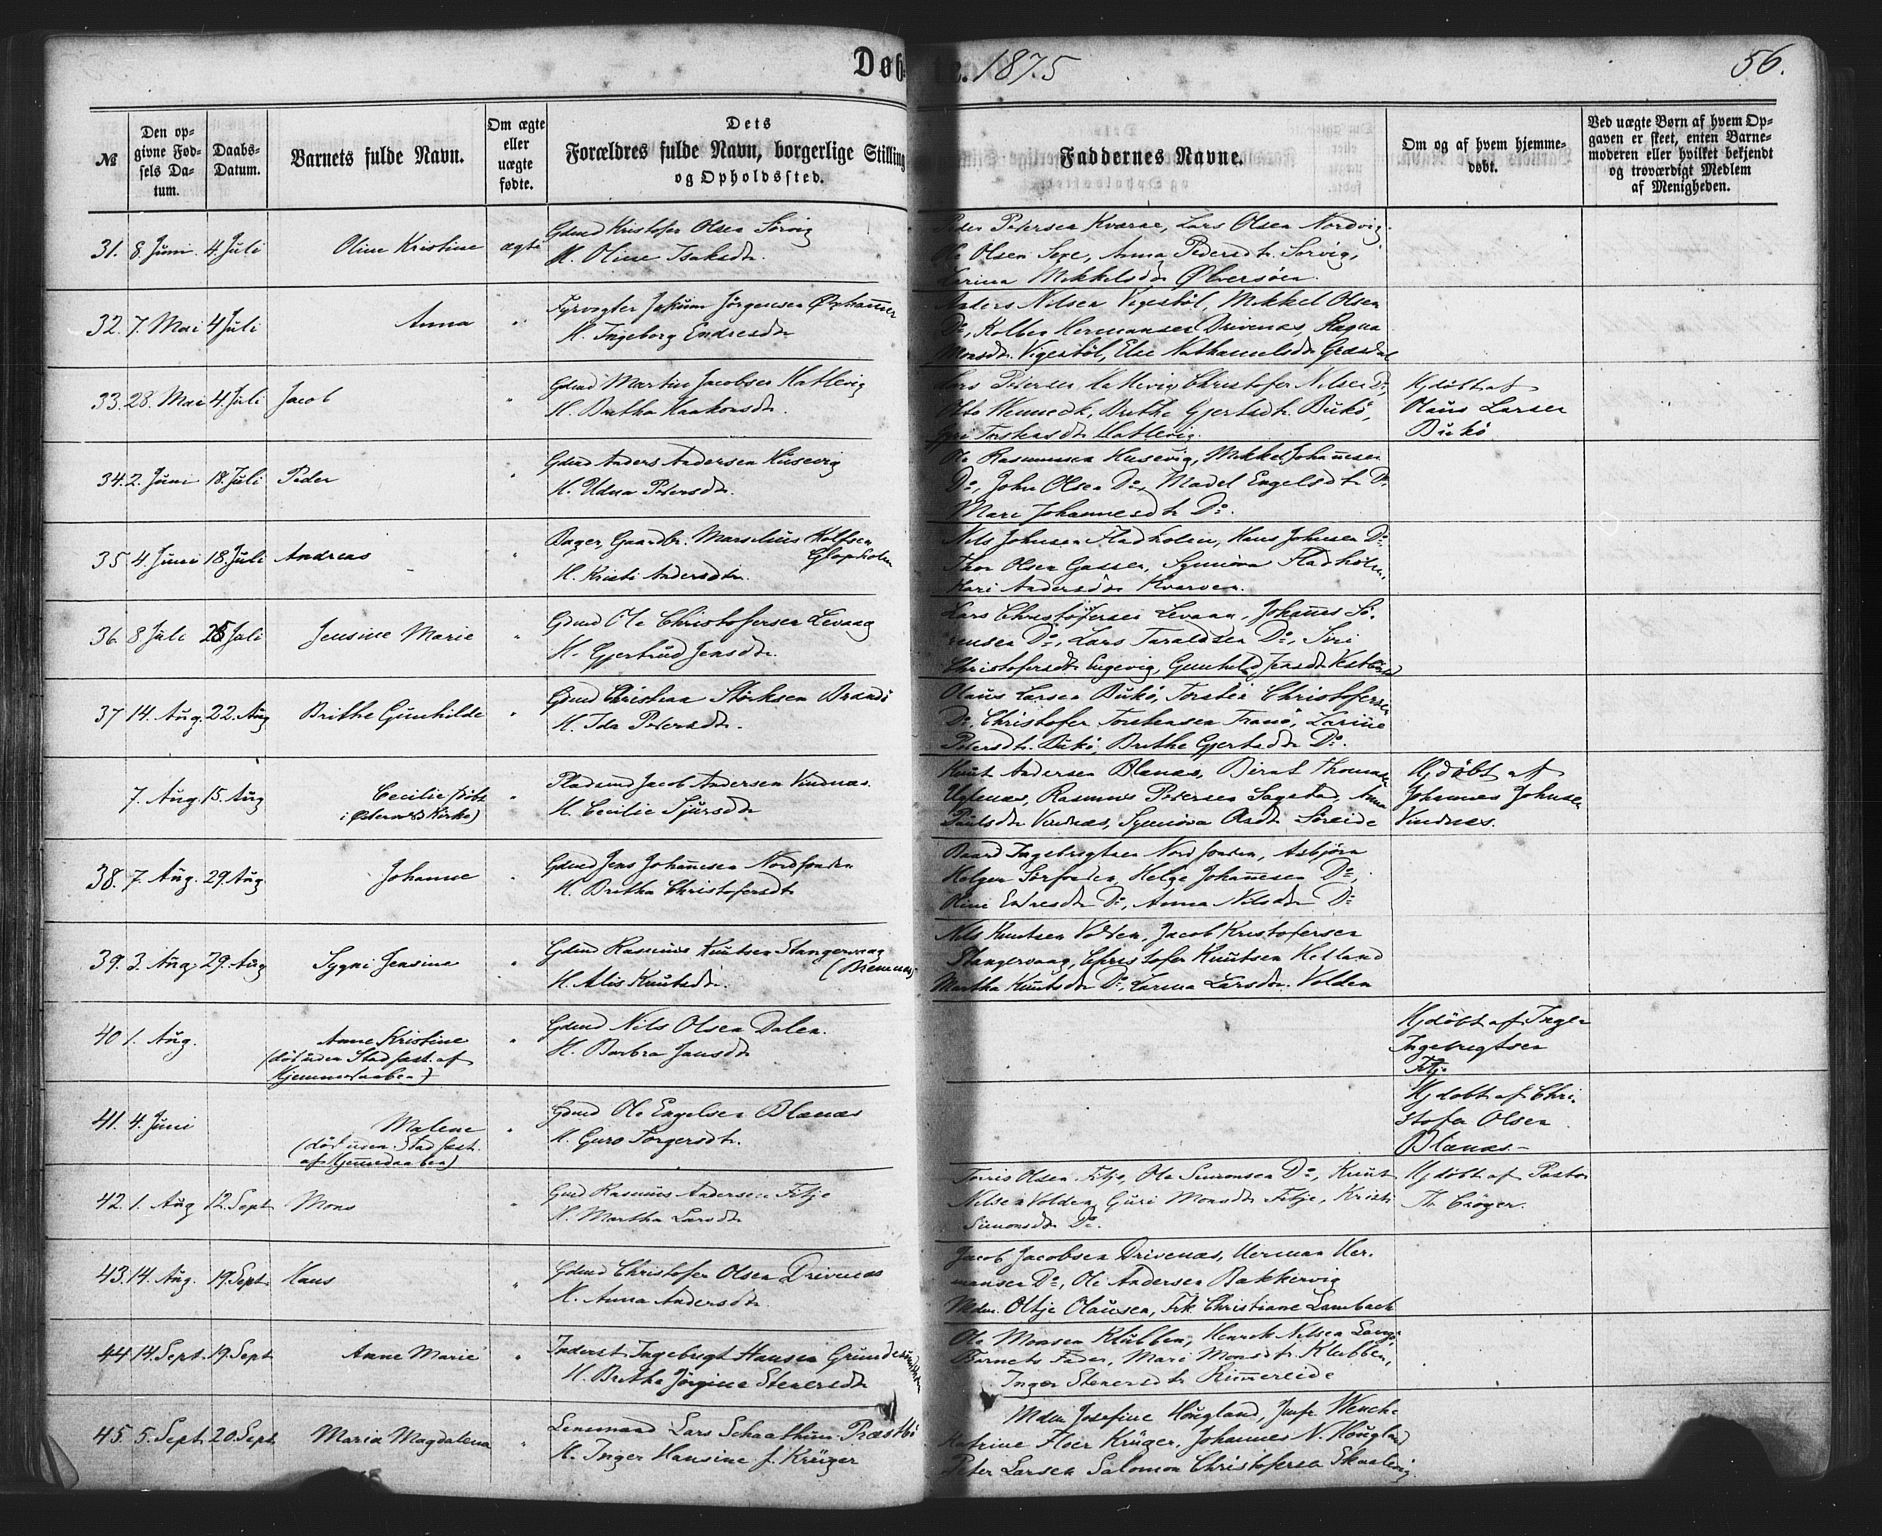 Døb
e. 1875
56.
№
Den opgivne Fødsels Datum.
Daabs-Datum.
Barnets fulde Navn.
Om ægte eller uægte fødte.
Dets
Forældres fulde Navn, borgerlige Stilling
og Opholdssted.
Faddernes Navne.
Om og af hvem hjemmedøbt.
Ved uægte Børn af hvem Opgaven er skeet, enten Barnemoderen eller hvilket bekjendt og troværdigt Medlem af Menigheden.
31. 8. Juni 4. Juli Oline Kristine ægte Gdmd Kristofer Olsen Sørvig
H. Oline Isaksdtr.
Peder Petersen Kværne, Lars Olsen Nordvig
Ole Olsen Seye, Anna Pedersdtr Sørvig,
Larina Mikkelsdtr Ølversøen.
32. 7. Mai 4 Juli Anna " Fyrvogter Jokum Jørgensen Øxehammer
H. Ingeborg Endresdtr
Anders Nilsen Vigestøl, Mikkel Olsen
Do, Kolben Hermansen Drivenæs, Ragna
Monsdtr. Vigestøl, Else Nathanaelsdtr Græsdal
33. 28. Mai 4. Juli Jacob " Gdmd Martin Jacobsen Hatlevig
H. Britha Haakonsdtr.
Lars Petersen Hatlevig, Christofer Nilsen Do,
Otto Wenneck, Brithe Gjertsdtr Bukø,
Guri Torstensdtr Hatlevig.
Hjdøbt af
Olaus Larsen
Bukø
34. 2. Juni 18. Juli Peder " Gdmd Anders Andersen Husevig
H. Udna Petersdtr.
Ole Rasmussen Husevig, Mikkel Johannesen
Do, John Olsen Do, Madel Engelsdtr Do
Mari Johannesdtr Do.
35 4. Juni 18. Juli Andreas " Bager, Gaardbr. Marselius Rolfsen
Glopholm
H. Kristi Andersdtr.
Nils Johnsen Fladholm, Hans Johnsen Do
Thor Olsen Gassen, Synnøva Fladholm,
Kari Andersdtr Kvarven.
36. 8 Juli 25 Juli Jensine Marie " Gdmd Ole Christofersen Levaag
H. Gjertrud Jensdtr.
Lars Christofersen Levaag, Johannes Sørensen Do, Lars Taraldsen Do, Siri
Christofersdtr Engevig, Gunhild Jensdtr
37 14. Aug. 22. Aug Brithe Gunhilde " Gdmd Christian Størksen Brandø
H. Ida Petersdtr.
Olaus Larsen Bukø, Torstei Christofersen
Do, Christofer Torstensen Tranø, Larine
Petersdtr. Bukø, Brithe Gjertsdtr Do.
7. Aug 15. Aug Cecilie (døbt
i Østervolds Kirke) " Pladsmd Jacob Andersen Vindnæs.
H. Cecilie Sjursdtr
Knut Andersen Blanæs, Bernt Thomassen
Uglenæs, Rasmus Petersen Sagstad, Anna
Paulsdtr Vindnæs, Synnøva Olsdtr Søreide
Hjdøbt af
Johannes Johnsen
Vindnæs.
38. 7. Aug. 29. Aug Johanne " Gdmd Jens Johannesen Nordfonden
H. Britha Christofersdtr
Baard Ingebrigtsen Nordfonden, Asbjørn
Holger Sørfonden, Helge Johannesen Do,
Oline Endresdtr Do, Anna Nilsdtr Do
39. 3. Aug. 29. Aug Sygni Jensine " Gdmd Rasmus Knutsen Stangervaag
(Bremnes)
H. Alis Knutsdtr.
Nils Knutsen Volden, Jacob Kristofersen
Stangervaag, Christofer Knutsen Helland
Martha Knutsdtr Do, Larina Larsdtr. Volden
40 1. Aug. Anne Kristine
(død uden Stadfæst. af
Hjemmedaaben) " Gdmd Nils Olsen Dalen.
H. Barbra Jansdtr
Hjdøbt af Inge
Ingebrigtsen
Fitje
41. 4. Juni Malene
(død uden Stadfæst.
af Hjemmedaaben) " Gdmd Ole Engelsen Blanæs
H. Guro Torgersdtr.
Hjdøbt af Christofer Olsen
Blanæs.
42. 1. Aug 12. Sept Mons " Gmd Rasmus Andersen Fitje
H. Martha Larsdtr
Torris Olsen Fitje, Ole Simonsen Do, Knut
Nilsen Volden, Guri Monsdtr Fitje, Kristi
Simonsdtr Do.
Hjdøbt af Pastor
Th. Crøger.
43. 14. Aug. 19. Sept Hans " Gdmd Christofer Olsen Drivenæs
H. Anna Andersdtr
Jacob Jacobsen Drivenæs, Herman Hermansen Do, Ole Andersen Bakkervig
Mdm. Oltje Olausen, Frk. Christiane Lambach
44 14. Sept. 19. Sept Anne Marie " Inderst Ingebrigt Hansen
H. Britha Jørgine Stenersdtr
Ole Monsen Klubben, Henrik Nilsen Langø
Barnets Fader, Mari Monsdtr. Klubben,
Inger Stenersdtr Rimmereide
45. 5. Sept 20. Sept Maria Magdalena " Lensmand Lars Schaathun Præstbø
H. Inger Hansine f. Krüger
Mdm Josefine Hougland, Jmfr. Wencke
Katrine Floer Krüger, Johannes N. Hougland
Peter Larsen Salomon Christofersen Skaalevig